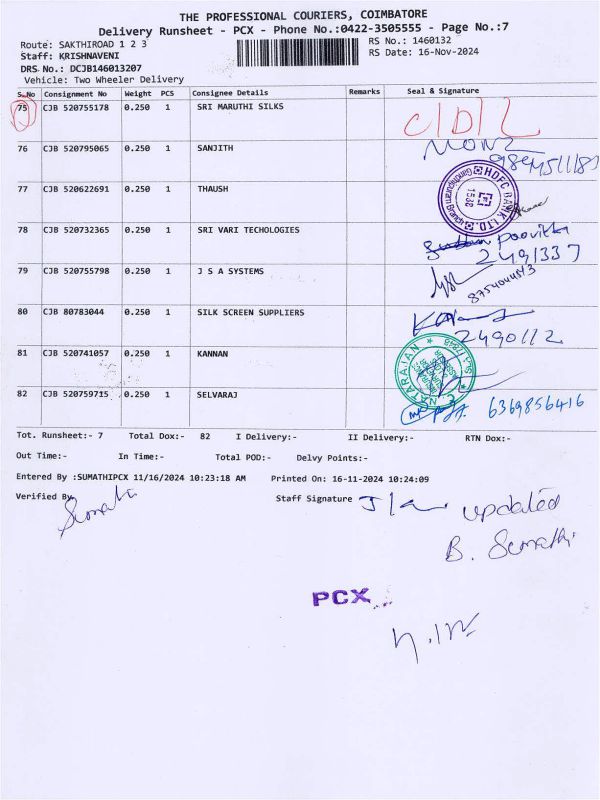 THE PROFESSIONAL COURIERS, COIMBATORE
Delivery Runsheet - PCX - Phone No.:0422-3505555 - Page No.:7
Route: SAKTHIROAD 1 2 3
RS No.: 1460132
Staff: KRISHNAVENI
RS Date: 16-Nov-2024
DRS No.: DCJB146013207
Vehicle: Two Wheeler Delivery
S.No Consignment No Weight PCS Consignee Details Remarks Seal & Signature
75 CJB 520755178 0.250 1 SRI MARUTHI SILKS C/D/L
76 CJB 520795065 0.250 1 SANJITH
77 CJB 520622691 0.250 1 THAUSH HDFC BANK LTD.
78 CJB 520732365 0.250 1 SRI VARI TECHOLOGIES 2491337
79 CJB 520755798 1 J S A SYSTEMS 8754044543
80 CJB 80783044 0.250 1 SILK SCREEN SUPPLIERS 2490112
81 CJB 520741057 0.250 1 KANNAN NATARAJAN
82 CJB 520759715 0.250 1 SELVARAJ 6369856416
Tot. Runsheet:- 7 Total Dox:- 82 I Delivery:- II Delivery:- RTN Dox:-
Out Time:- In Time:- Total POD:- Delvy Points:-
Entered By :SUMATHIPCX 11/16/2024 10:23:18 AM Printed On: 16-11-2024 10:24:09
Verified By Staff Signature
Sumathi
updated
B. Sumathi
PCX